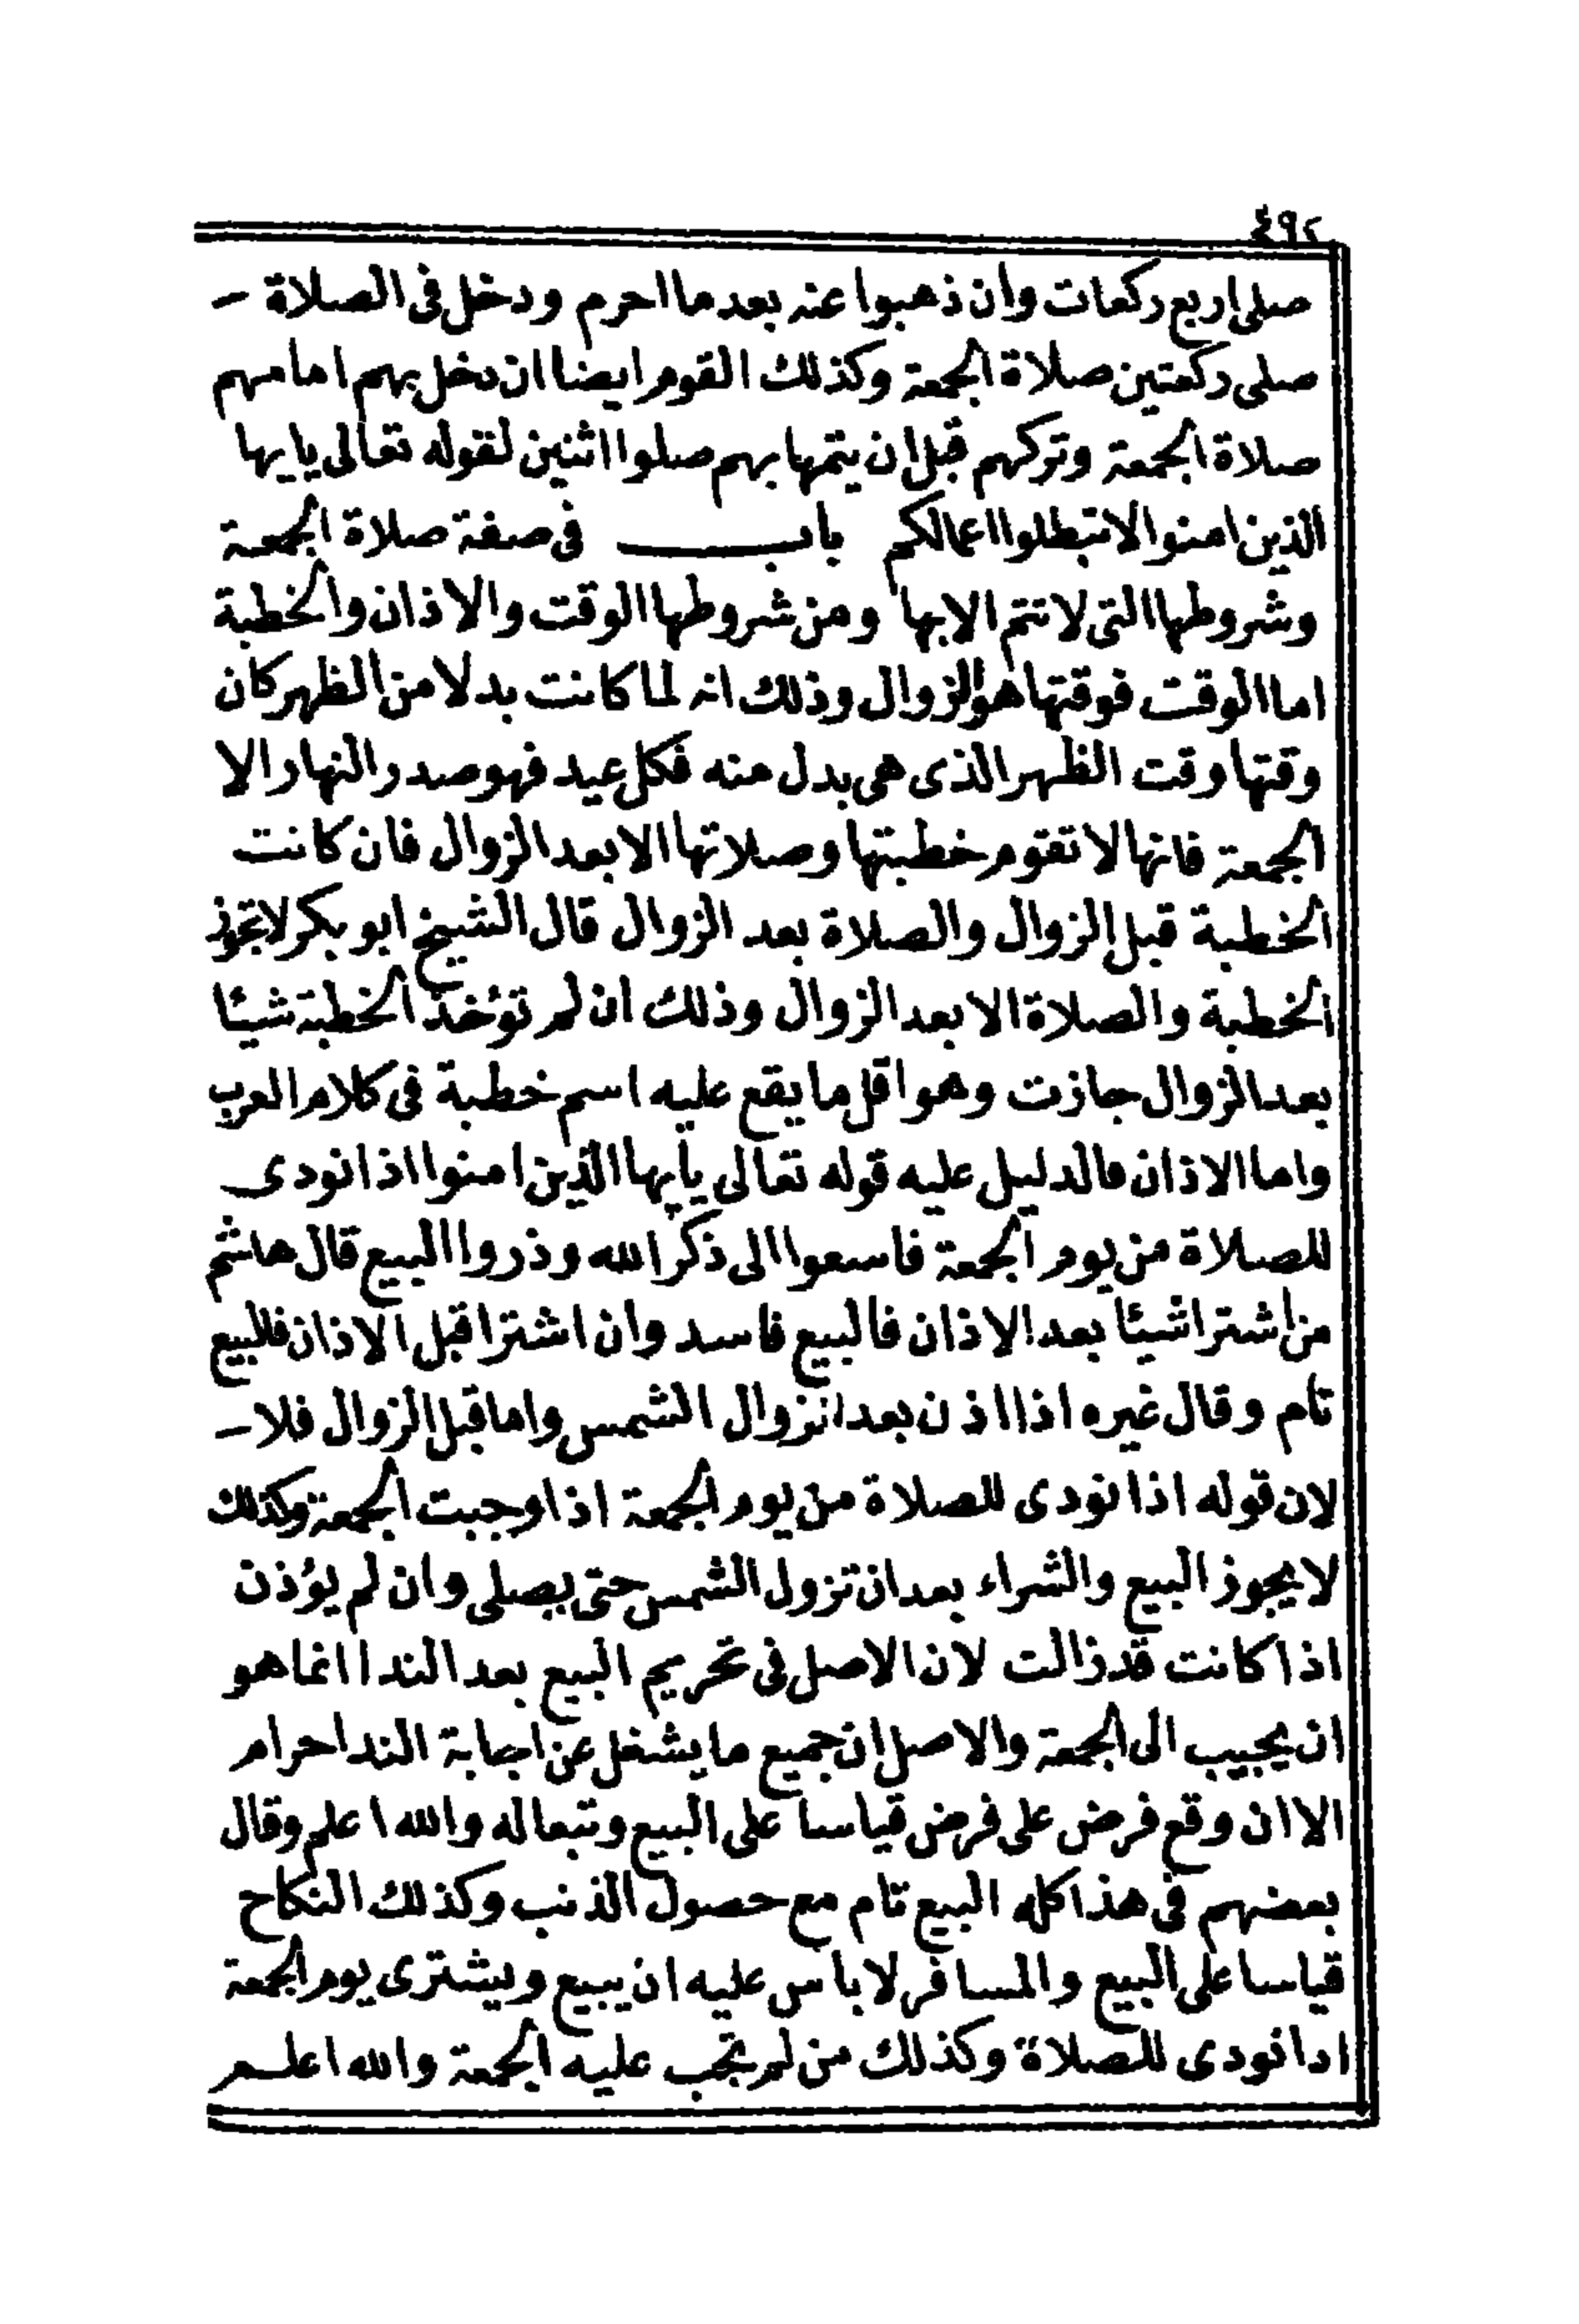 ٤٩٢
صلى اربع ركعات وان ذهبوا عنه بعد ما احرم ودخل فى الصلاة -
صلى ركعتين صلاة الجمعة وكذلك القوم ايضا ان دخل بهم امامهم
صلاة الجمعة وتركهم قبل ان يتمها بهم صلوا اثنين لقوله تعالى يايها
الذين امنوا لا تبطلوا اعمالكم باب فى صفة صلاة الجمعة
وشروطها التى لا تتم الا بها ومن شروطها الوقت والاذان والخطبة
اما الوقت فوقتها هو الزوال وذلك انه لما كانت بدلا من الظهر كان
وقتها وقت الظهر الذى هى بدل منه فكل عيد فهو صدر النهار الا
الجمعة فانها لا تقوم خطبتها وصلاتها الا بعد الزوال فان كانت
الخطبة قبل الزوال والصلاة بعد الزوال قال الشيخ ابو بكر لا تجوز
الخطبة والصلاة الا بعد الزوال وذلك ان لم تؤخذ الخطبة شيئا
بعد الزوال جازت وهو اقل ما يقع عليه اسم خطبة فى كلام العرب
واما الاذان فالدليل عليه قوله تعالى يأيها الذين امنوا اذا نودى
للصلاة من يوم الجمعة فاسعوا الى ذكر الله وذروا البيع قال هاشم
من اشترا شيئا بعد الاذان فالبيع فاسد وان اشترا قبل الاذان فالبيع
تام وقال غيره اذا اذن بعد انزوال الشمس واما قبل الزوال فلا -
لان قوله اذا نودى للصلاة من يوم الجمعة اذا وجبت الجمعة وكذلك
لا يجوز البيع والشراء بعد ان تزول الشمس حتى يصلى وان لم يؤذن
اذا كانت قد زالت لان الاصل فى تحريم البيع بعد الندا انما هو
ان يجيب الى الجمعة والاصل ان جميع ما يشغل عن اجابة الندا حرام
الا ان وقع فرض على فرض قياسا على البيع وتبعا له والله اعلم وقال
بعضهم فى هذا كله البيع تام مع حصول الذنب وكذلك النكاح
قياسا على البيع والمسافر لا بأس عليه ان يبيع ويشترى يوم الجمعة
ادا نودى للصلاة وكذلك من لم تجب عليه الجمعة والله اعلم